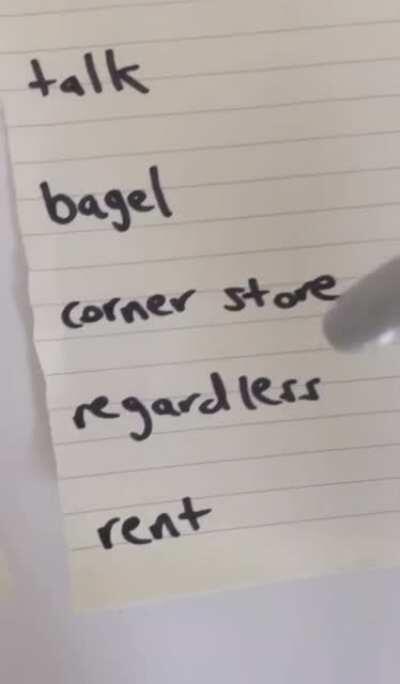 talk
bagel
corner store
regardless
rent